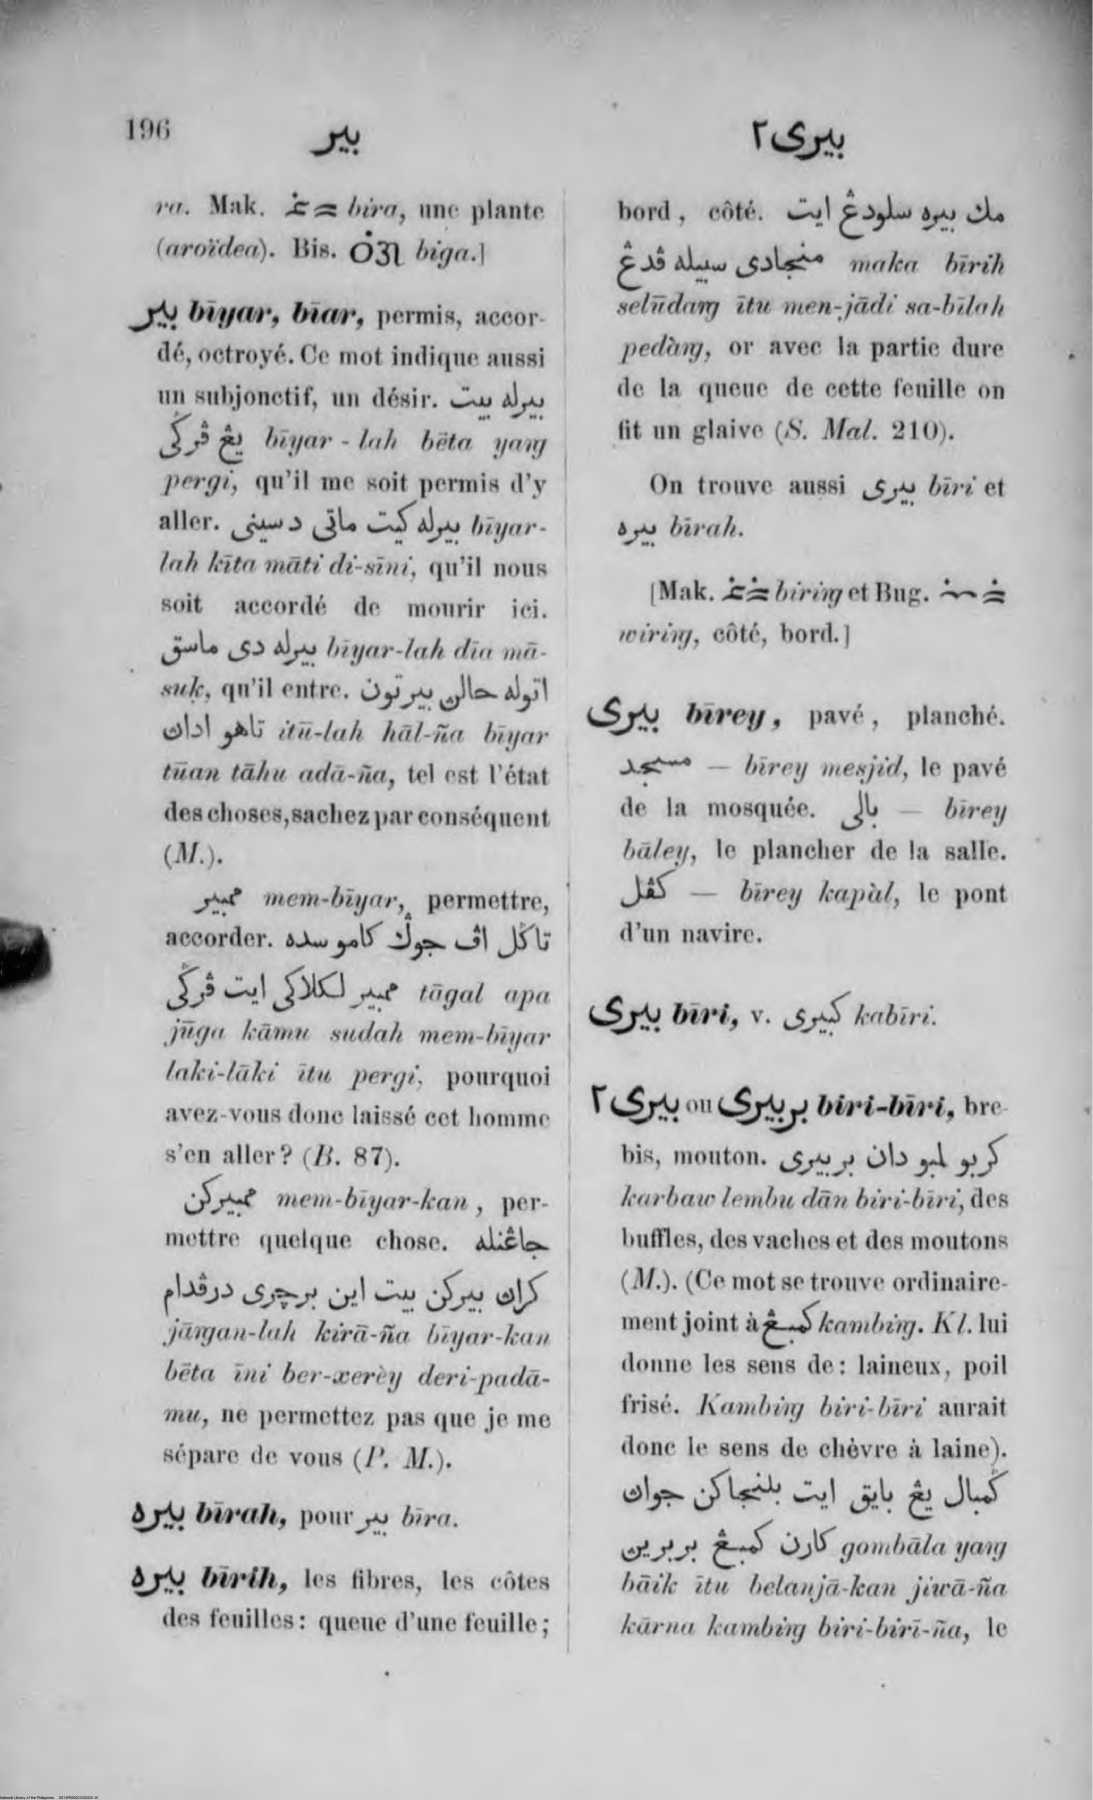 196
بير
بيرى٢
ra. Mak. bira, une plante
(aroïdea). Bis. biga.]
بير bīyar, bīar, permis, accor-
dé, octroyé. Ce mot indique aussi
un subjonctif, un désir. بيرله بيت
يڠ ڤرݢى bīyar-lah bēta yaṅg
pergi, qu'il me soit permis d'y
aller. بيرله كيت ماتى دسينى bīyar-
lah kīta māti di-sīni, qu'il nous
soit accordé de mourir ici.
بيرله دى ماسق bīyar-lah dīa mā-
suḳ, qu'il entre. اتوله حالن بيرتون
تاهو ادان itū-lah hāl-ña bīyar
tūan tāhu adā-ña, tel est l'état
des choses, sachez par conséquent
(M.).
ممبير mem-bīyar, permettre,
accorder. تاݢل اڤ جوݢ كامو سده
ممبير لكلاكى ايت ڤرݢى tāgal apa
jūga kāmu sudah mem-bīyar
laki-lāki ītu pergi, pourquoi
avez-vous donc laissé cet homme
s'en aller? (B. 87).
ممبيركن mem-bīyar-kan, per-
mettre quelque chose. جاڠنله
كران بيركن بيت اين برچرى درڤدام
jāṅgan-lah kirā-ña bīyar-kan
bēta īni ber-xerèy deri-padā-
mu, ne permettez pas que je me
sépare de vous (P. M.).
بيره bīrah, pour بير bīra.
بيره bīrih, les fibres, les côtes
des feuilles: queue d'une feuille;
bord, côté. مك بيره سلودڠ ايت
منجادى سبيله ڤدڠ maka bīrih
selūdaṅg ītu men-jādi sa-bīlah
pedàṅg, or avec la partie dure
de la queue de cette feuille on
fit un glaive (S. Mal. 210).
On trouve aussi بيرى bīri et
بيره bīrah.
[Mak. biriṅg et Bug.
wiriṅg, côté, bord.]
بيرى bīrey, pavé, planché.
مسجد — bīrey mesjid, le pavé
de la mosquée. بالى — bīrey
bāley, le plancher de la salle.
كڤل — bīrey kapàl, le pont
d'un navire.
بيرى bīri, v. كبيرى kabīri.
بيرى٢ ou بربيرى biri-bīri, bre-
bis, mouton. كربو لمبو دان بربيرى
karbaw lembu dān biri-bīri, des
buffles, des vaches et des moutons
(M.). (Ce mot se trouve ordinaire-
ment joint à كمبڠ kambiṅg. Kl. lui
donne les sens de: laineux, poil
frisé. Kambiṅg biri-bīri aurait
donc le sens de chèvre à laine).
ݢمبال يڠ بايق ايت بلنجاكن جوان
كارن كمبڠ بربرين gombāla yaṅg
bāik ītu belanjā-kan jiwā-ña
kārna kambiṅg biri-birī-ña, le